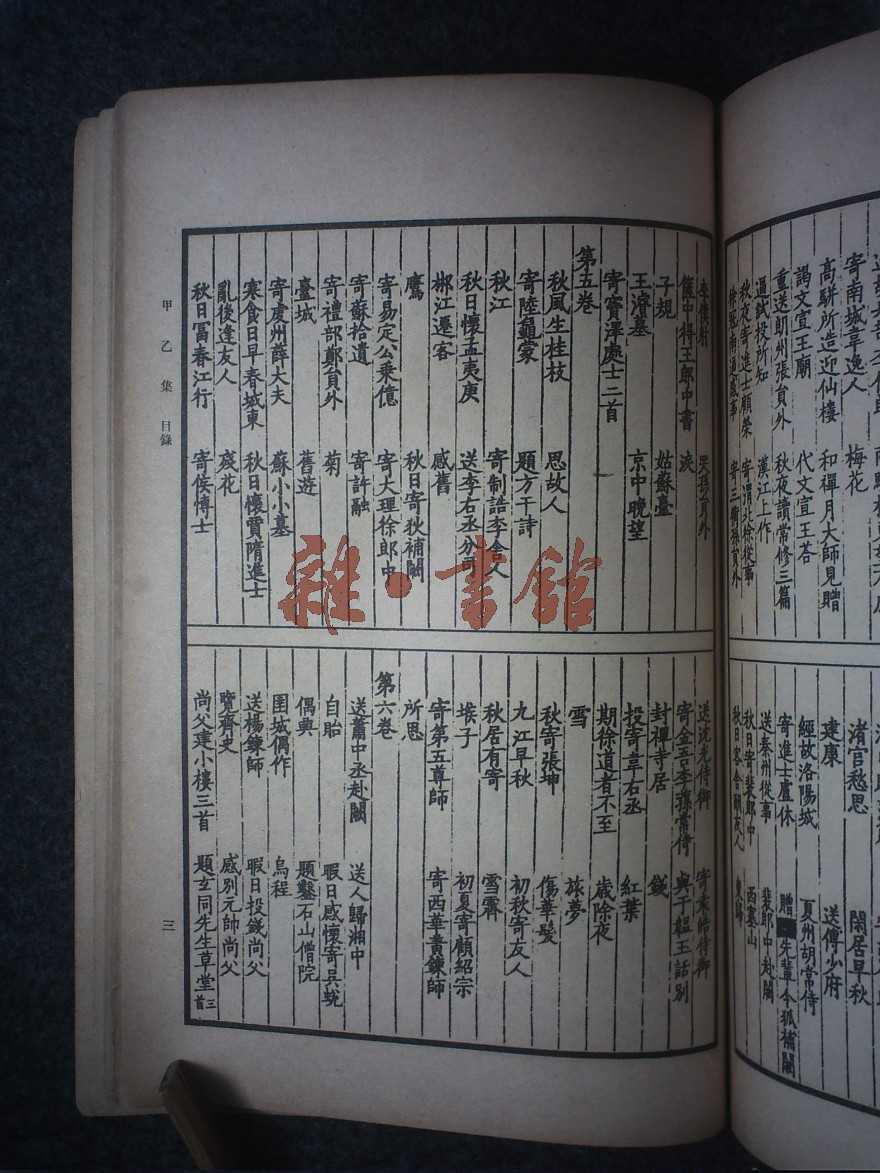 寄南城韋逸人 梅花
高駢所造迎仙樓 和禪月大師見贈
謁文宣王廟 代文宣王荅
重送朗州張貟外 秋夜讀常修三篇
逼試投所知 漢江上作
秋夜寄進士顧榮 寄渭北徐從事
徐寇南逼感事 寄三衢孫貟外
渚宮愁思 閑居早秋
建康 送傅少府
經故洛陽城 夏州胡常侍
寄進士盧休 贈 先輩令狐補闕
送秦州從事 裴郎中赴闕
秋日寄裴郎中 西塞山
秋日客舍 友人 東歸
李僕射 貟外
篋中得王郎中書 淚
子規 姑蘇臺
王濬墓 京中晚望
寄竇澤處士二首
第五卷
秋風生桂枝 思故人
寄陸龜蒙 題方干詩
秋江 寄制誥李舍人
秋日懷孟夷庚 送李右丞分司
郴江遷客 感舊
鷹 秋日寄狄補闕
寄易定公乘億 寄大理徐郎中
寄蘇拾遺 寄許融
寄禮部鄭貟外 菊
臺城 舊遊
寄虔州薛大夫 蘇小小墓
寒食日早春城東 秋日懷賈隋進士
亂後逢友人 殘花
秋日富春江行 寄侯博士
送沈光侍御 寄袁皓侍御
寄金吾李蓀常侍 與于韞玉話別
封禪寺居 錢
投寄韋右丞 紅葉
期徐道者不至 歲除夜
雪 旅夢
秋寄張坤 傷華髮
九江早秋 初秋寄友人
秋居有寄 雪霽
堠子 初夏寄顧紹宗
寄第五尊師 寄西華黃鍊師
所思
第六卷
送蕭中丞赴闕 送人歸湘中
自貽 暇日感懷寄吳蛻
偶興 題鑿石山僧院
圍城偶作 烏程
送楊鍊師 暇日投錢尚父
覽齊史 感別元帥尚父
尚父建小樓三首 題玄同先生草堂三首
甲乙集 目錄
三
雜·書館